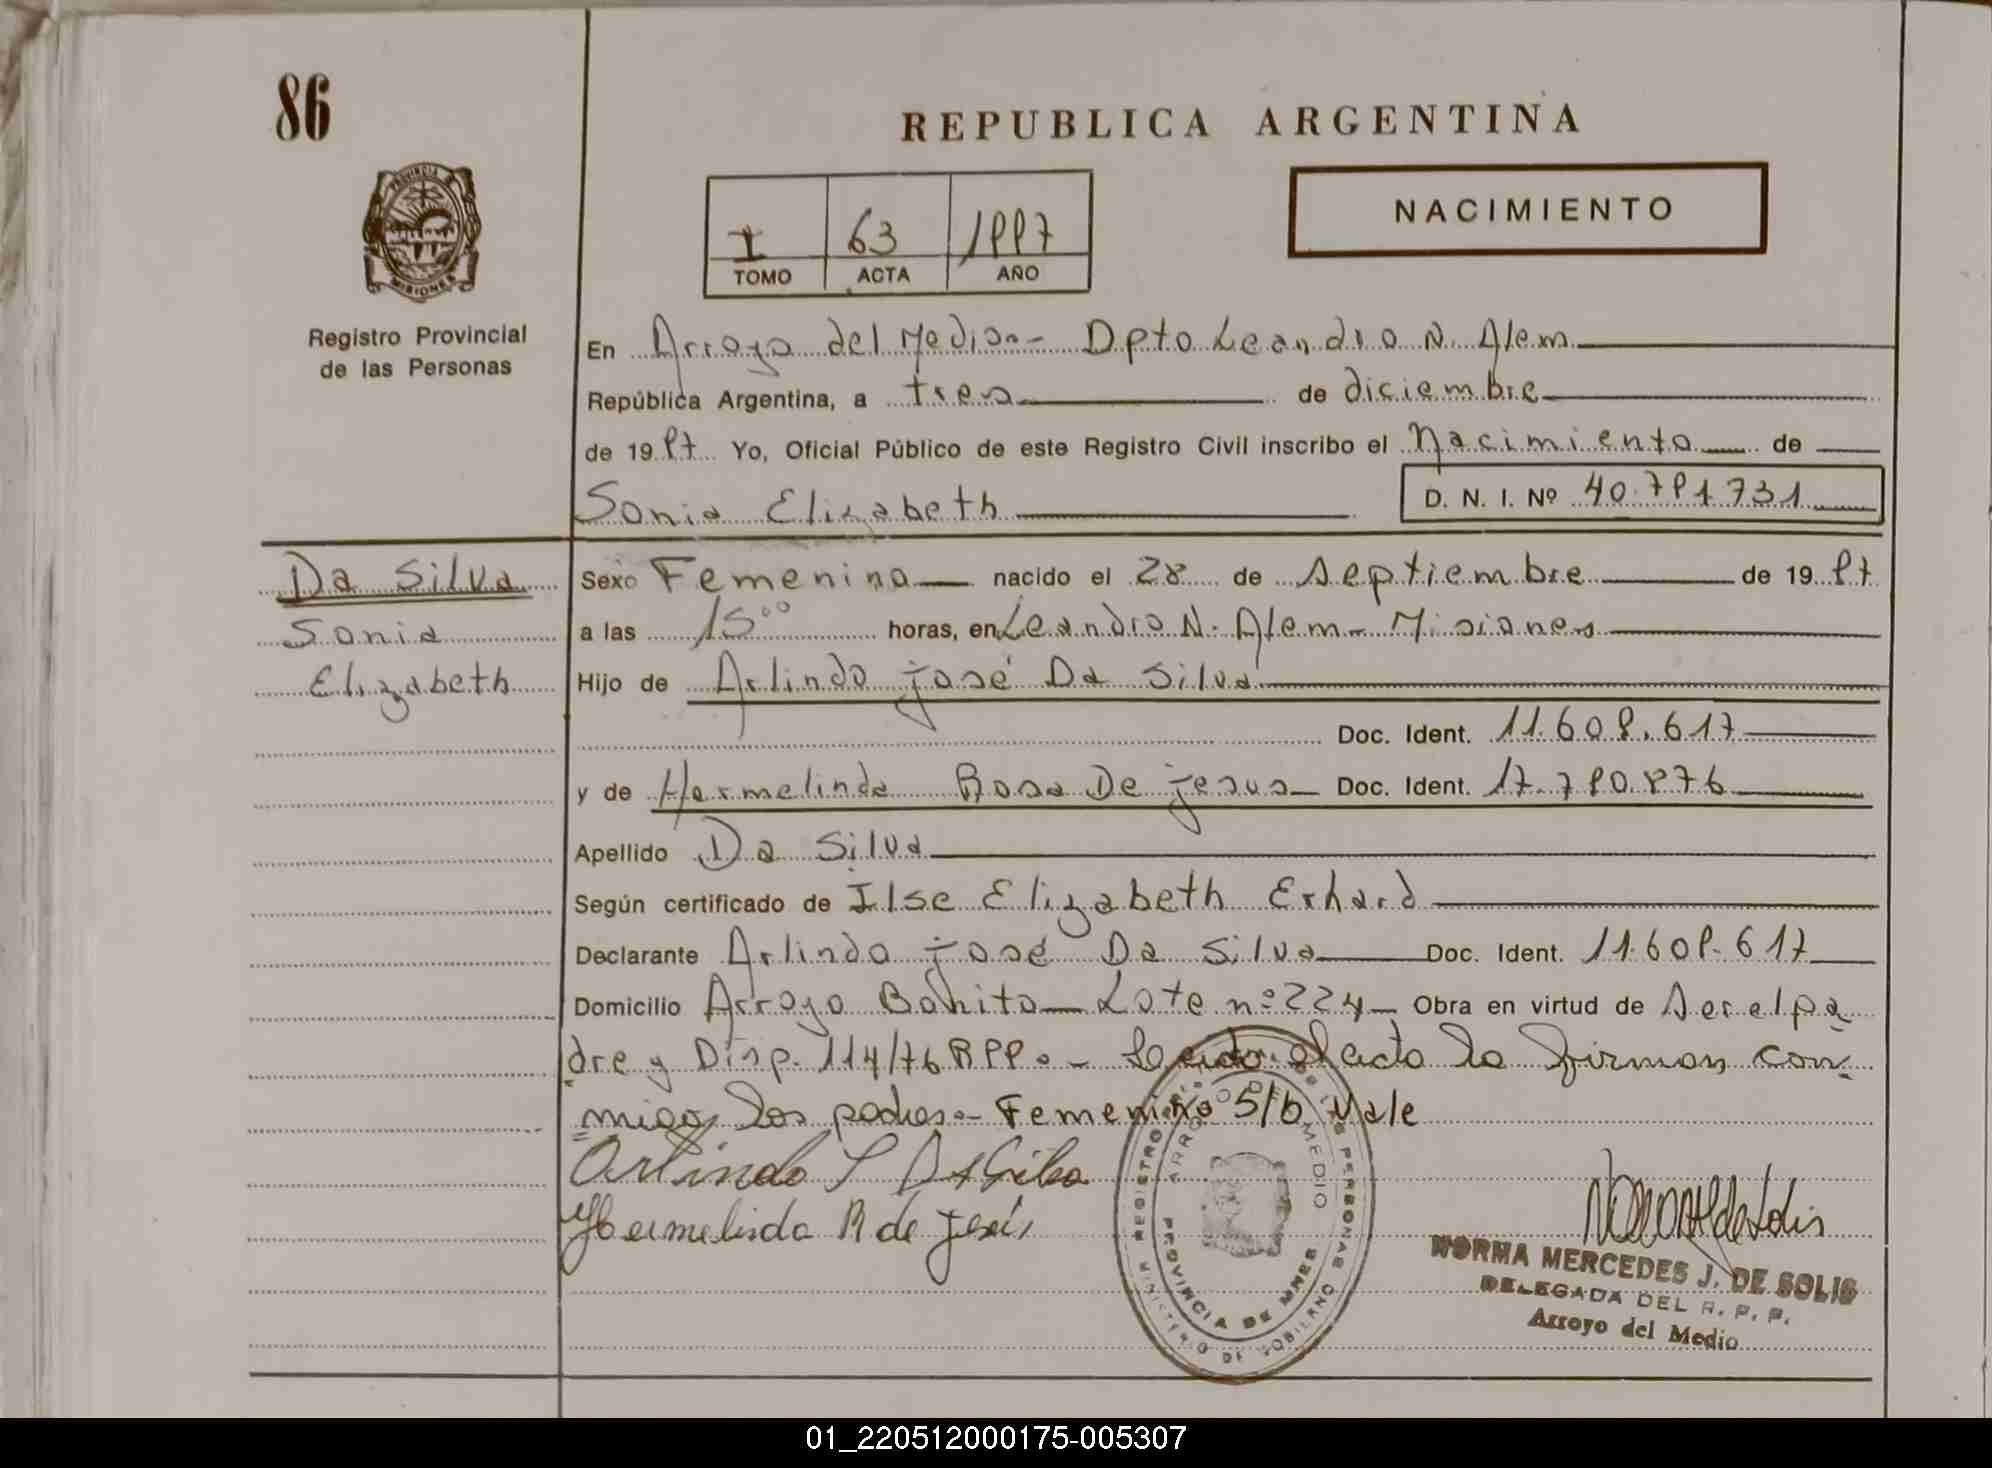 86
REPUBLICA ARGENTINA
PROVINCIA DE MISIONES
NACIMIENTO
I 63 1997
TOMO ACTA AÑO
Registro Provincial
de las Personas
En Arroyo del Medio.- Dpto Leandro N. Alem
República Argentina, a tres de diciembre
de 19 97 Yo, Oficial Público de este Registro Civil inscribo el nacimiento de
Sonia Elizabeth D. N. I. Nº 40.791731
Da Silva
Sonia
Elizabeth
Sexo Femenino nacido el 28 de septiembre de 19 97
a las 15 00 horas, en Leandro N. Alem - Misiones
Hijo de Arlindo josé Da Silva
Doc. Ident. 11.609.617
y de Hermelinda Rosa De jesus Doc. Ident. 17.790.976
Apellido Da Silva
Según certificado de Ilse Elizabeth Erhard
Declarante Arlindo josé Da Silva Doc. Ident. 11.609.617
Domicilio Arroyo Bonito - Lote nº 224 - Obra en virtud de ser el pa
dre y Disp. 114/76 RPP.- Leido el acta la firman con
migo los padres.- Femenino S/b Vale
Arlindo J Da Silva
Hermelinda R de jesús
REGISTRO DE LAS PERSONAS
MINISTERIO DE GOBIERNO
ARROYO DEL MEDIO
PROVINCIA DE MNES
NORMA MERCEDES J. DE SOLIS
DELEGADA DEL R. P. P.
Arroyo del Medio
01_220512000175-005307